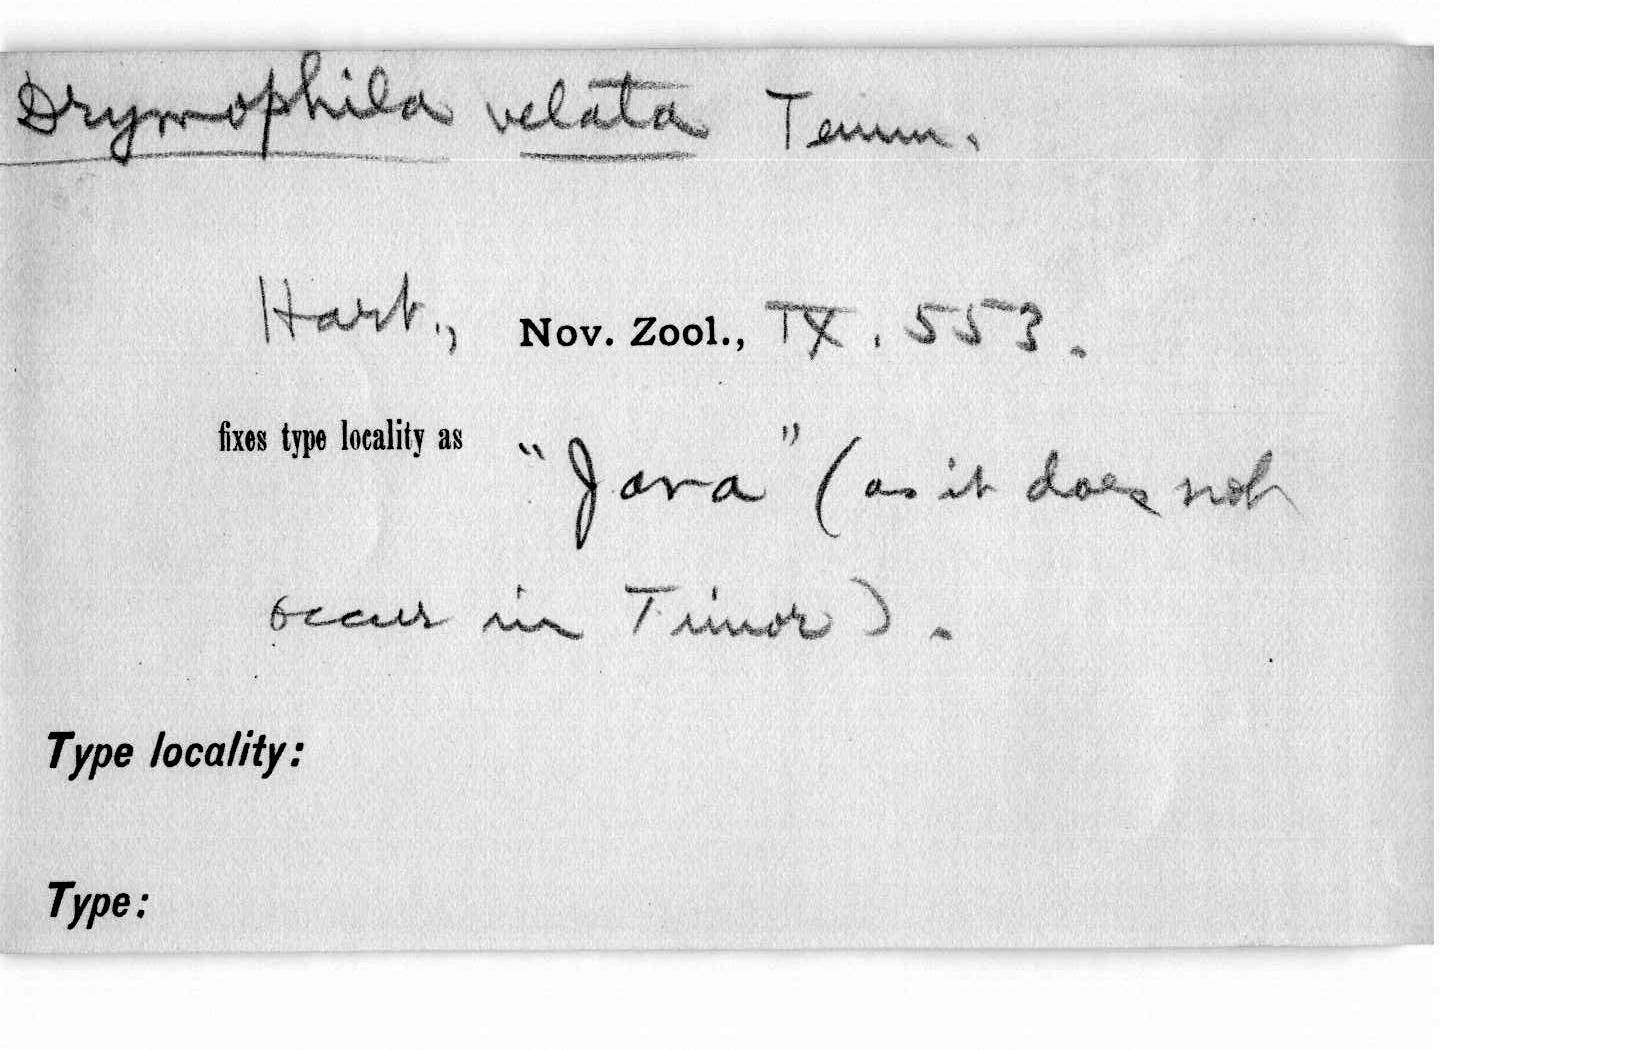 Drymophila velata Temm.
Hart., Nov. Zool., IX. 553.
fixes type locality as "Java" (as it does not
occur in Timor).
Type locality:
Type: